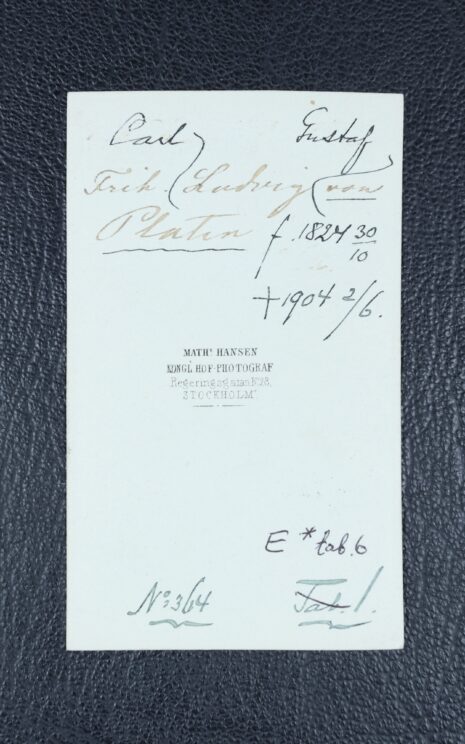 Carl Gustaf
Frih. Ludvig von
Platen f. 1824 30/10
+ 1904 2/6.
MATHS HANSEN
KONGL HOF-PHOTOGRAF
Regeringsgatan No 28,
STOCKHOLM.
E * tab. 6
No: 364 Tab. 1.